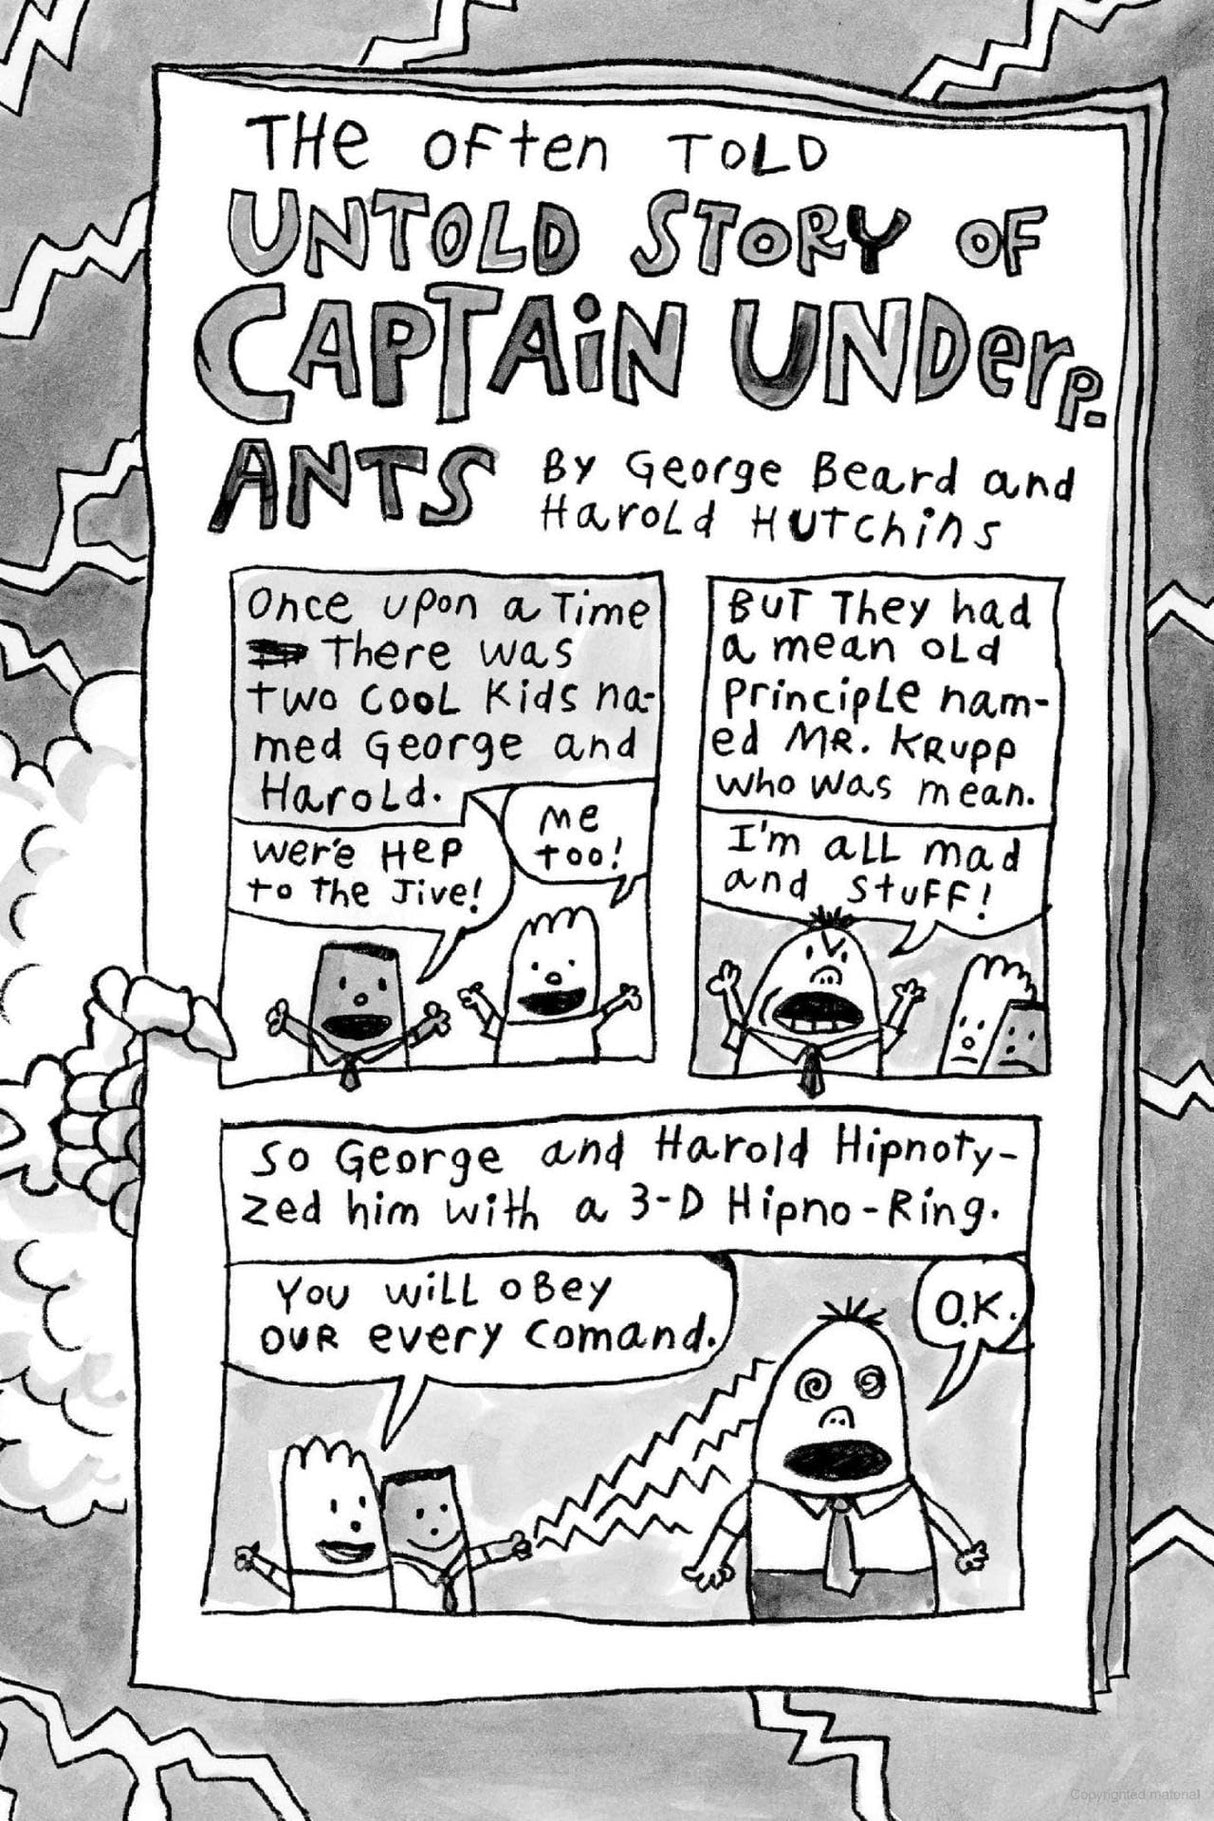 THe OFten TOLD
UNTOLD STORY OF
CAPTAiN UNDerp-
ANTS
By George Beard and
HaroLd HUTchins
Once upon a Time
There was
two cooL Kids na-
med George and
HaroLd.
were HeP
to The Jive!
Me
too!
BuT They had
a mean oLd
principLe nam-
ed MR. KRupp
who was mean.
I'm aLL mad
and stuFF!
So George and Harold Hipnoty-
zed him with a 3-D Hipno-Ring.
You wiLL oBey
OUR every Comand.
O.K.
Copyrighted material